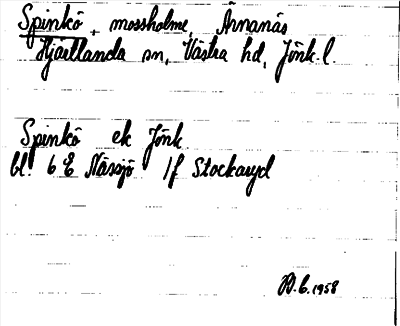 Spinkö, mossholme, Årnanäs
Hjärtlanda sn, Västra hd, Jönk. l.
Spinkö ek Jönk
bl. 6 E Nässjö 1f Stockaryd
1958